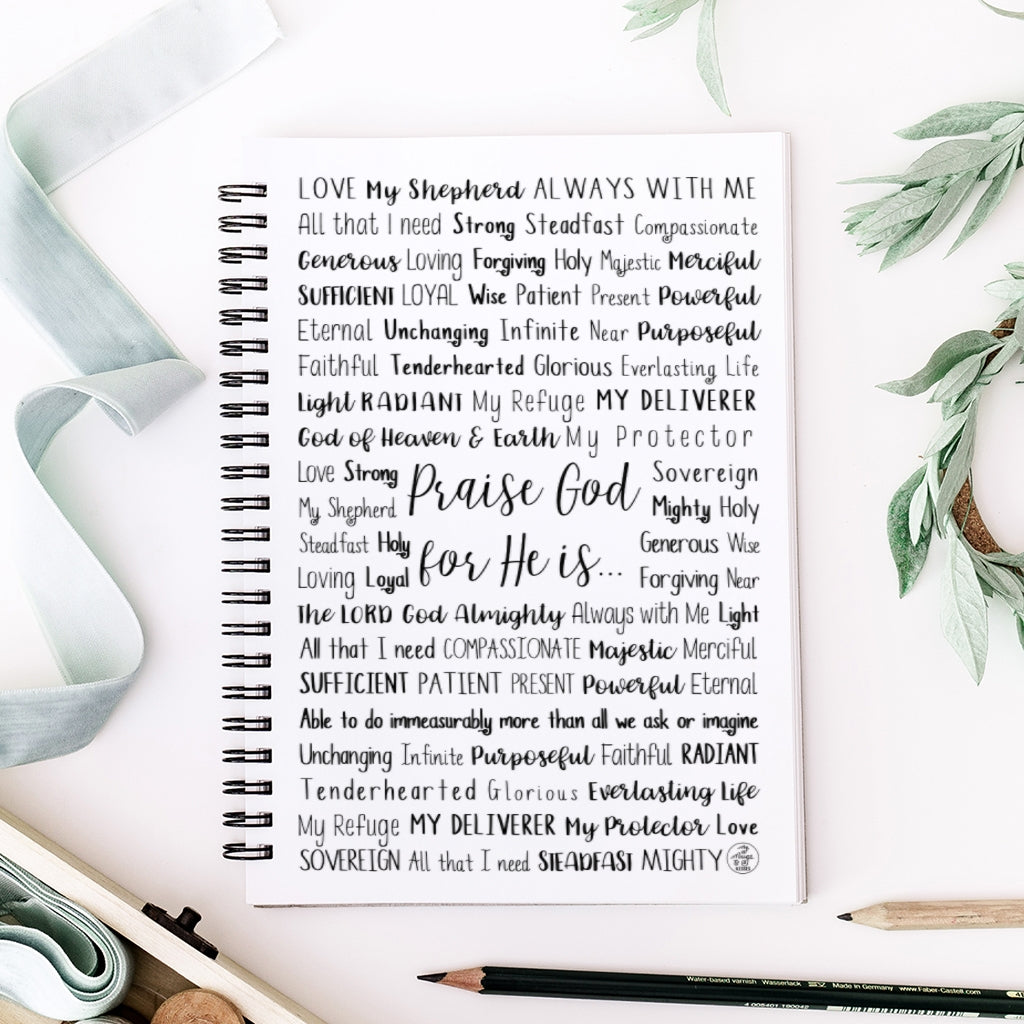 LOVE My Shepherd ALWAYS WITH ME
All that I need Strong Steadfast Compassionate
Generous Loving Forgiving Holy Majestic Merciful
SUFFICIENT LOYAL Wise Patient Present Powerful
Eternal Unchanging Infinite Near Purposeful
Faithful Tenderhearted Glorious Everlasting Life
Light RADIANT My Refuge MY DELIVERER
God of Heaven & Earth My Protector
Love Strong
My Shepherd
Praise God
Sovereign
Mighty Holy
Steadfast Holy
Loving Loyal
for He is...
Generous Wise
Forgiving Near
The LORD God Almighty Always with Me Light
All that I need COMPASSIONATE Majestic Merciful
SUFFICIENT PATIENT PRESENT Powerful Eternal
Able to do immeasurably more than all we ask or imagine
Unchanging Infinite Purposeful Faithful RADIANT
Tenderhearted Glorious Everlasting Life
My Refuge MY DELIVERER My Protector Love
SOVEREIGN All that I need STEADFAST MIGHTY
Water-based varnish Wasserlack Made in Germany www.Faber-Castell.com